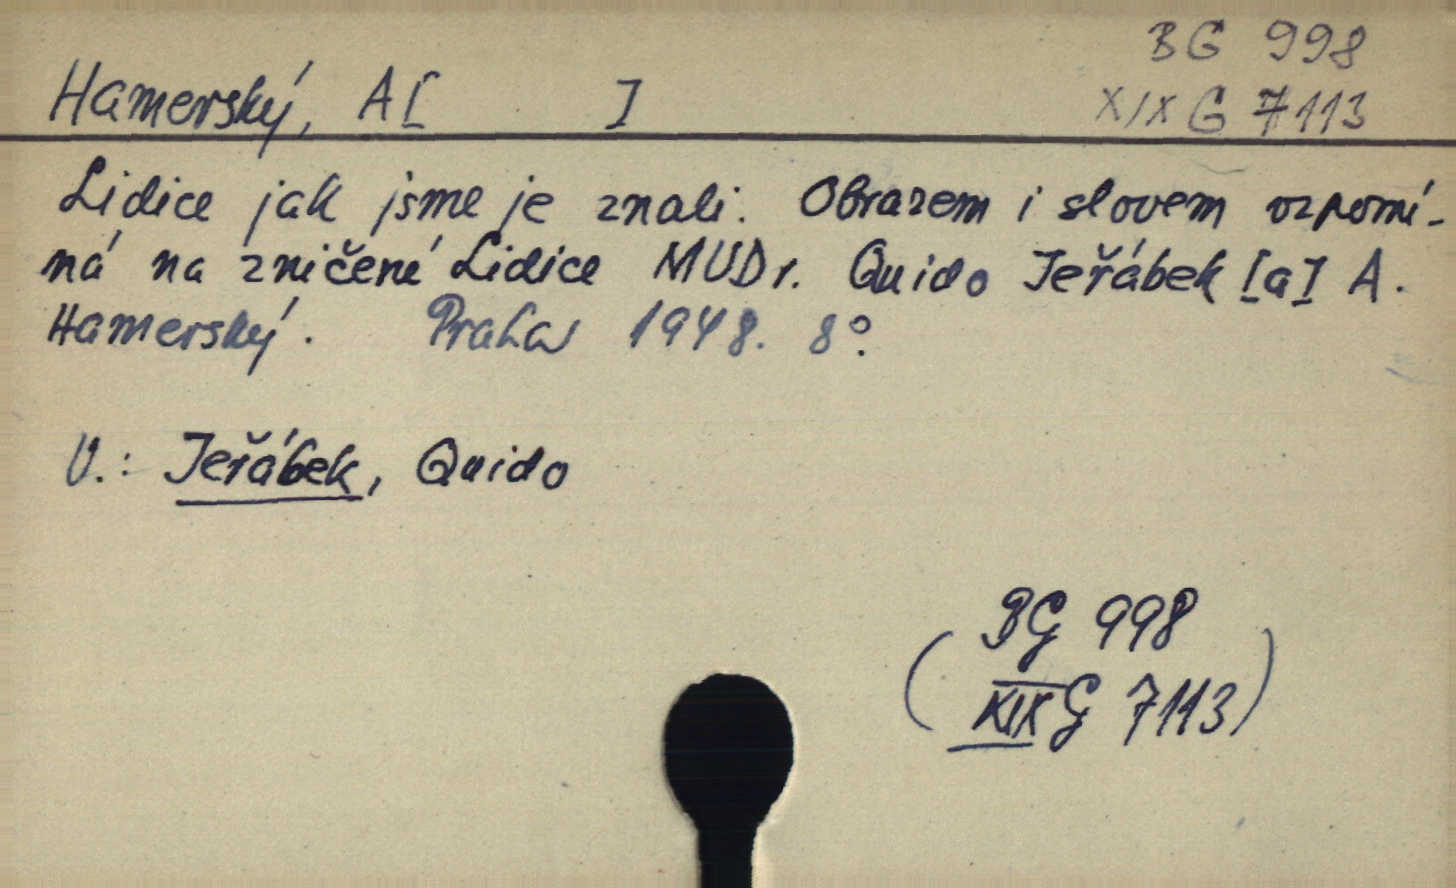 BG 998
Hamerský, A[ ]
XIX G 7113
Lidice jak jsme je znali. Obrazem i slovem vzpomí-
ná na zničené Lidice MUDr. Quido Jeřábek [a] A.
Hamerský. Praha 1948. 8°.
V.: Jeřábek, Quido
( BG 998
XIX G 7113 )